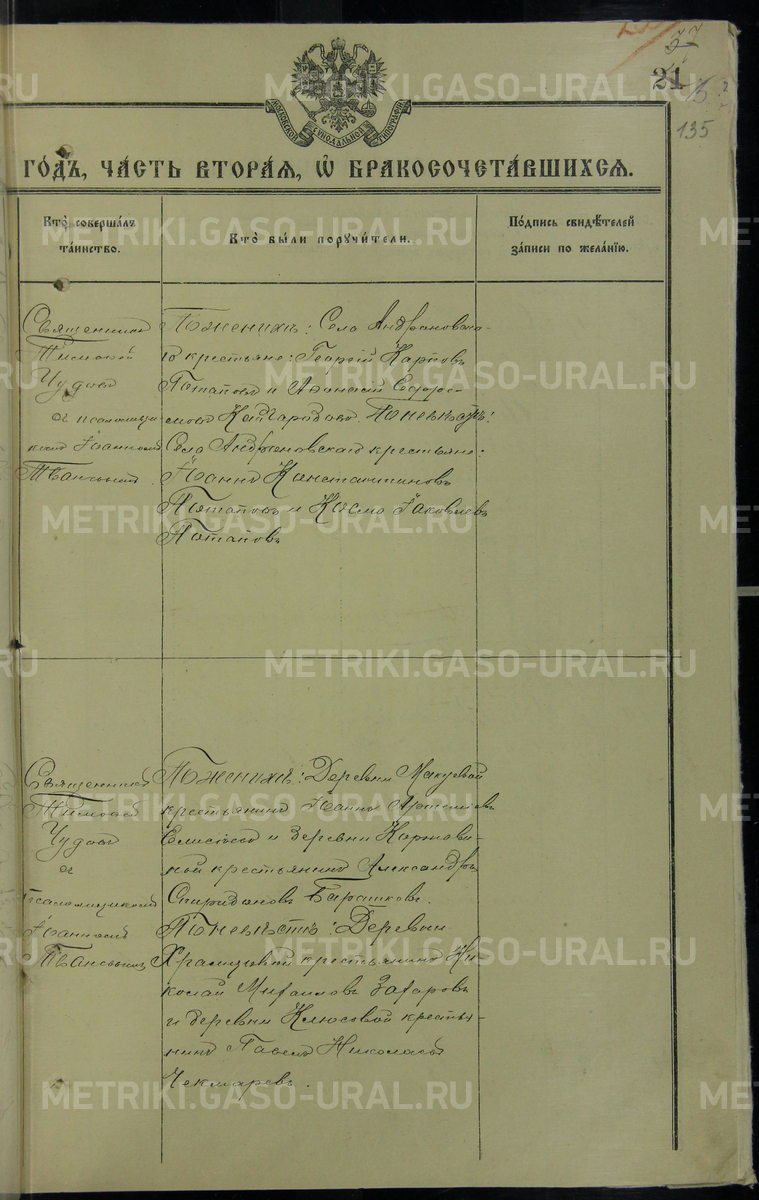 37
21
135
МОСКОВСКОЙ СѴНОДАЛЬНОЙ ТИПОГРАФІИ
ГО́ДЪ, ЧА́СТЬ ВТОРА́Я, Ѡ҆ БРАКОСОЧЕТА́ВШИХСЯ.
Кто̀ соверша́лъ
та́инство.
Кто̀ бы́ли порꙋчи́тели.
По́дпись свидѣ́телей
за́писи по жела́нїю.
Священникъ
Тимофей
Чудовъ
съ псаломщи-
комъ Іоанномъ
По женихѣ: Села Андроновска-
го крестьяне: Георгій Карповъ
Потаповъ и Афанасій
Кайгородовъ. По невѣстѣ:
Села Андроновскаго крестьяне:
Іоаннъ Константиновъ
Потаповъ и Косма Іаковлевъ
Потаповъ
Священникъ
Тимофей
Чудовъ
съ
псаломщикомъ
Іоанномъ
По женихѣ: Деревни Макуевой
крестьянинъ Іоаннъ Артемьевъ
Елисѣевъ и деревни
крестьянинъ Александръ
Спиридоновъ Барашковъ.
По невѣстѣ: Деревни
Храмцовой крестьянинъ Ни-
колай Михаиловъ Захаровъ
и деревни Клюсовой кресть-
янинъ Павелъ Николаевъ
Чекмаревъ.
METRIKI.GASO-URAL.RU